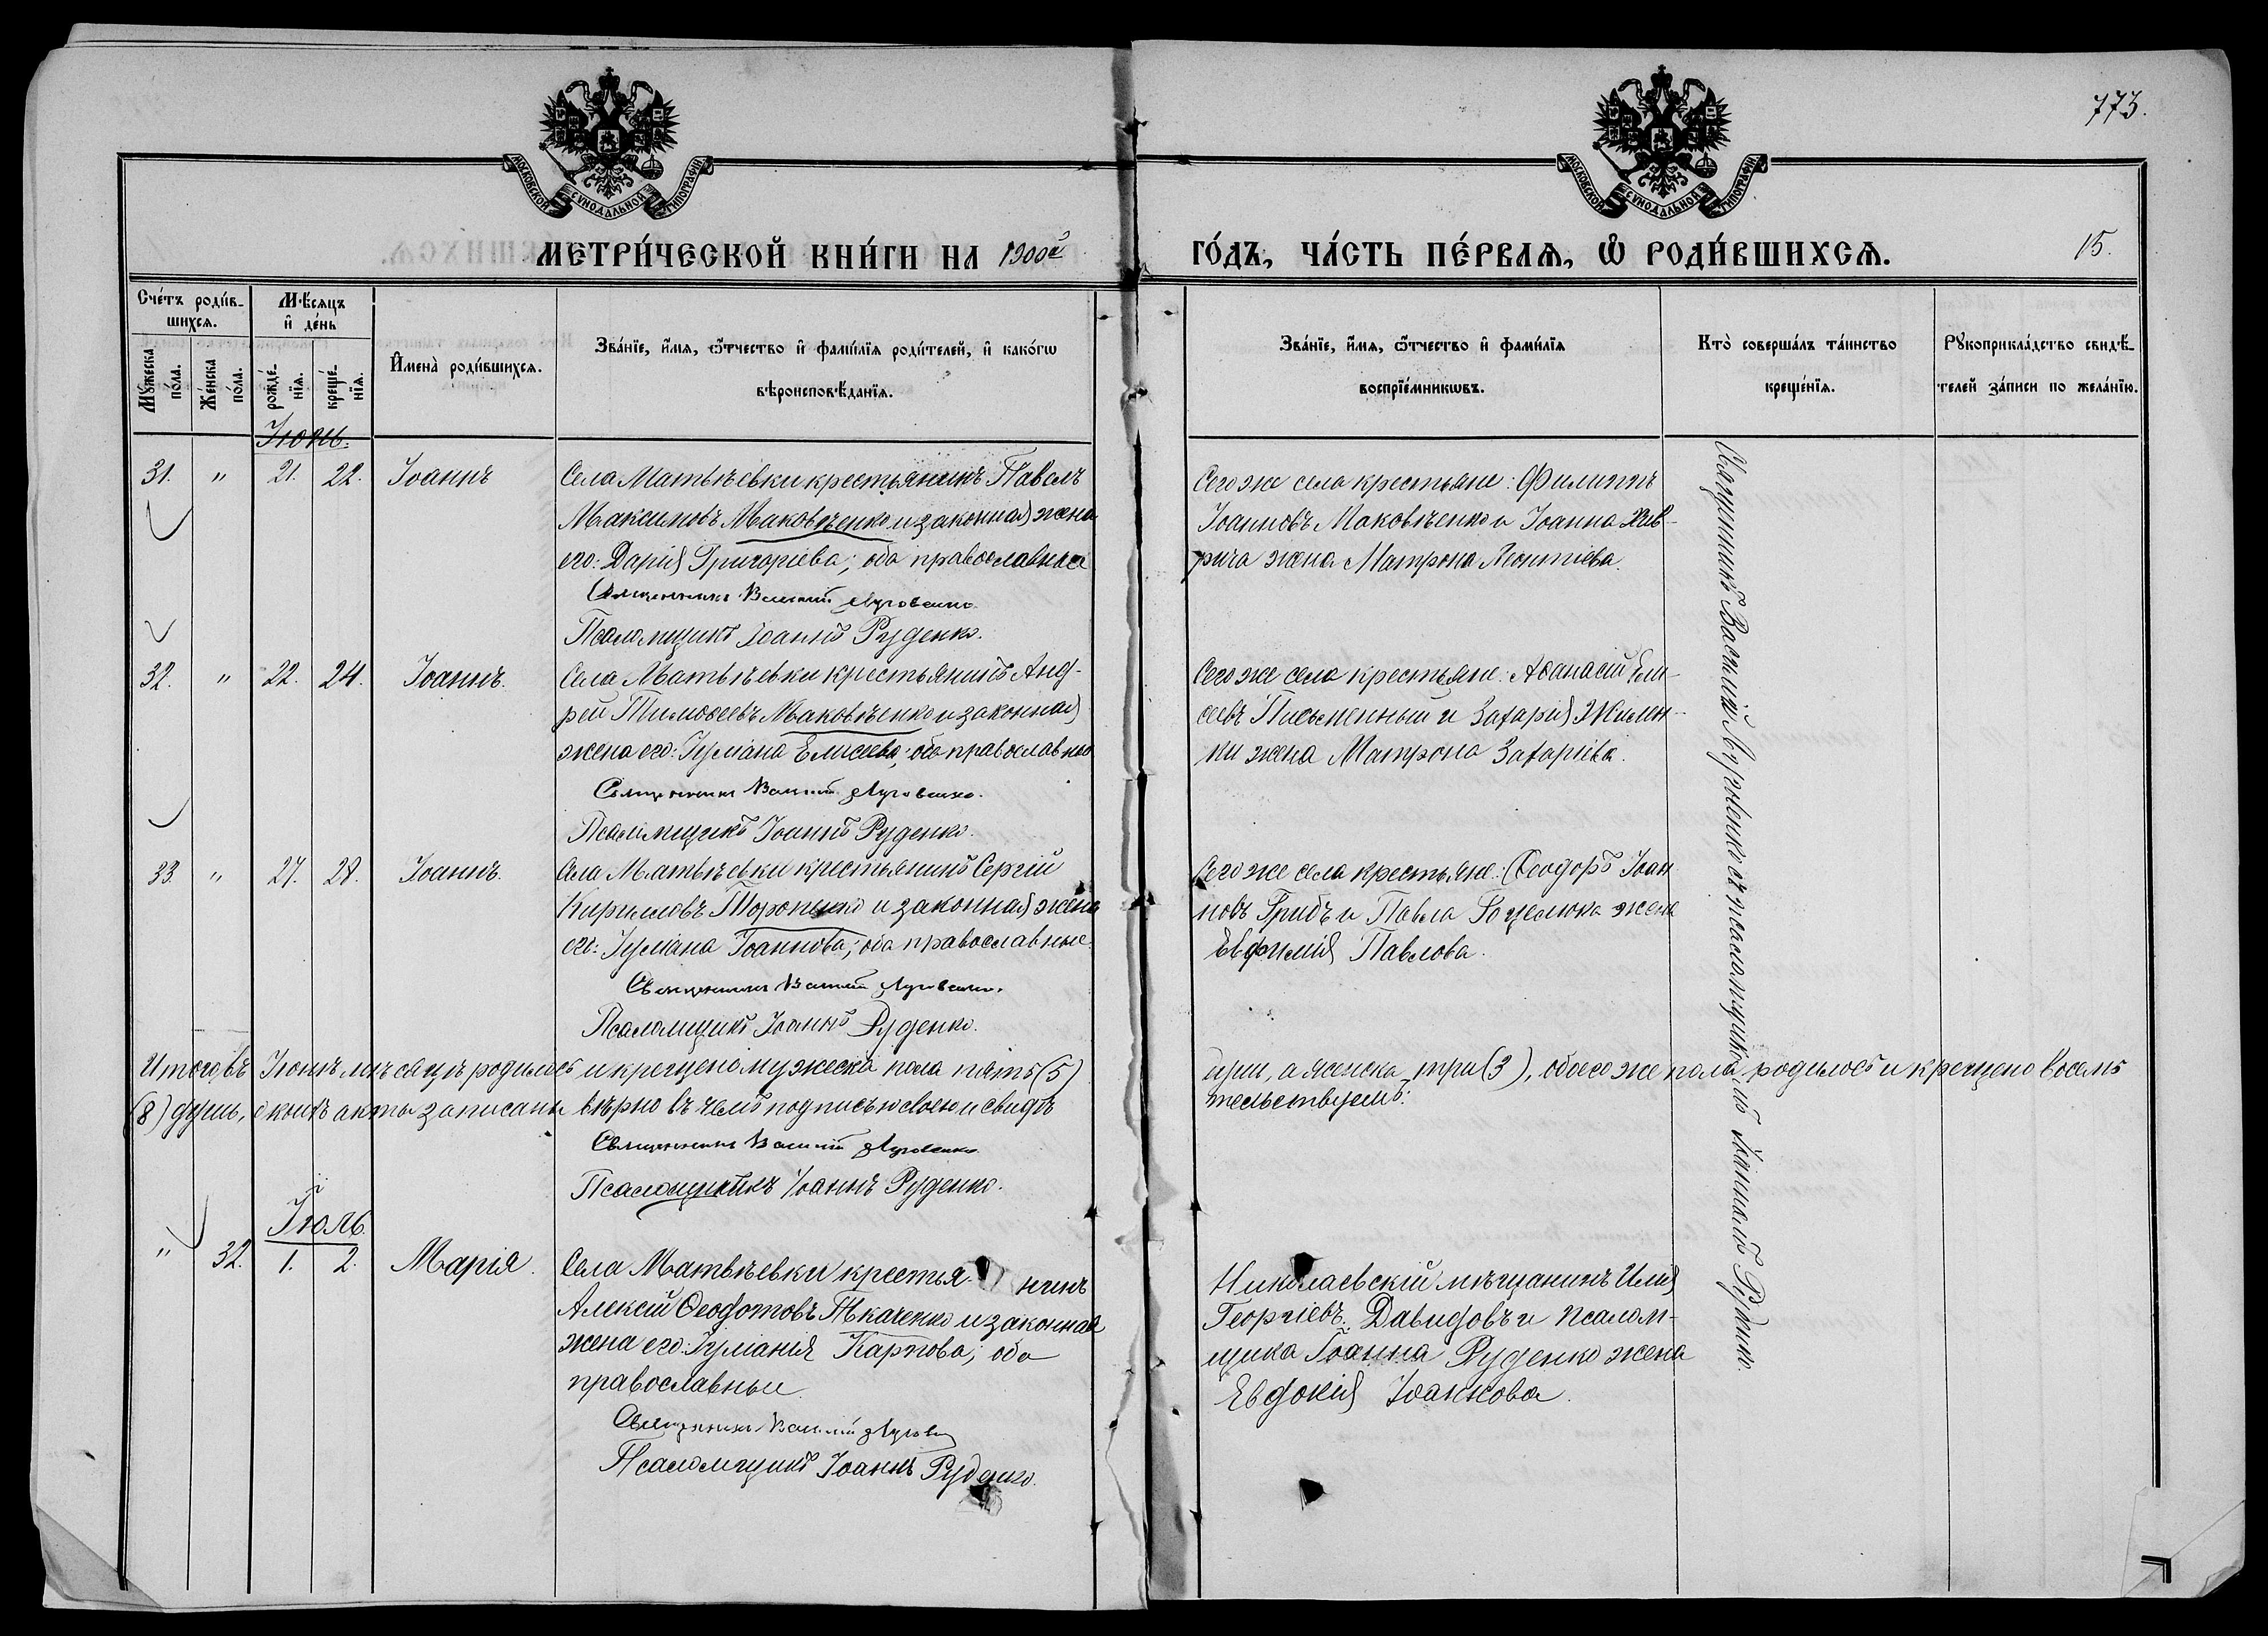 773.
МОСКОВСКОЙ СУНОДАЛЬНОЙ ТИПОГРАФІИ
МОСКОВСКОЙ СУНОДАЛЬНОЙ ТИПОГРАФІИ
МЕТРИ́ЧЕСКОЙ КНИ́ГИ НА 1900й
ГО́ДЪ, ЧА́СТЬ ПЕ́РВАѦ, Ѡ҆ РОДИ́ВШИХСѦ. 15.
Сче́тъ роди́в-
шихсѧ.
Мꙋ́жеска по́ла.
Же́нска по́ла.
Мѣ́сѧцъ
и҆ де́нь
рожде́-
нїѧ.
креще́-
нїѧ.
И҆мена̀ роди́вшихсѧ.
Зва́нїе, и҆́мѧ, ѻ҆́тчество и҆ фами́лїѧ роди́телей, и҆ како́гѡ
вѣроисповѣ́данїѧ.
Зва́нїе, и҆́мѧ, ѻ҆́тчество и҆ фами́лїѧ
воспрїе́мникѡвъ.
Кто̀ соверша́лъ та́инство
креще́нїѧ.
Рꙋкоприкла́дство свидѣ́-
телей за́писи по жела́нїю.
Іюнь.
31. " 21. 22. Іоаннъ
Села Матвѣевки крестьянинъ Павелъ
Максимовъ Маковѣенко и законная жена
его: Дарія Григоріева; оба православные
Священникъ Василій Луговенко.
Псаломщикъ Іоаннъ Руденко.
Сего же села крестьяне: Филиппъ
Іоанновъ Маковѣенко и Іоанна Хив-
рича жена Матрона Леонтіева.
32. " 22. 24. Іоаннъ.
Села Матвѣевки крестьянинъ Анд-
рей Тимоѳеевъ Маковѣенко и законная
жена его: Іуліана Елисеева; оба православные
Священникъ Василій Луговенко.
Псаломщикъ Іоаннъ Руденко.
Сего же села крестьяне: Аѳанасій Ели-
сеевъ Письменный и Захарія Жилен-
ки жена Матрона Захаріева.
33. " 27. 28. Іоаннъ.
Села Матвѣевки крестьянинъ Сергій
Кирилловъ Торопенко и законная жена
его: Іуліана Іоаннова; оба православные.
Священникъ Василій Луговенко.
Псаломщикъ Іоаннъ Руденко.
Сего же села крестьяне: Ѳеодоръ Іоан
новъ Грибъ и Павла жена
Евфимія Павлова.
Священникъ Василій Луговенко съ псаломщикомъ Іоанномъ Руденко.
Итого въ Іюнѣ мѣсяцѣ родилось и крещено мужеска пола пять (5)
души, а женска три (3), обоего же пола родилось и крещено восемь
(8) душъ, о коихъ акты записаны вѣрно въ чемъ подписью своею и свидѣ
тельствуемъ:
Священникъ Василій Луговенко.
Псаломщикъ Іоаннъ Руденко.
Іюль.
" 32. 1. 2. Марія.
Села Матвѣевки крестья нинъ
Алексій Ѳеодотовъ Ткаченко и законная
жена его: Іуліанія Карпова; оба
православные.
Священникъ Василій
Псаломщикъ Іоаннъ Руденко.
Николаевскій мѣщанинъ Илія
Георгіевъ Давидовъ и псалом-
щика Іоанна Руденко жена
Евдокія Іоаннова.